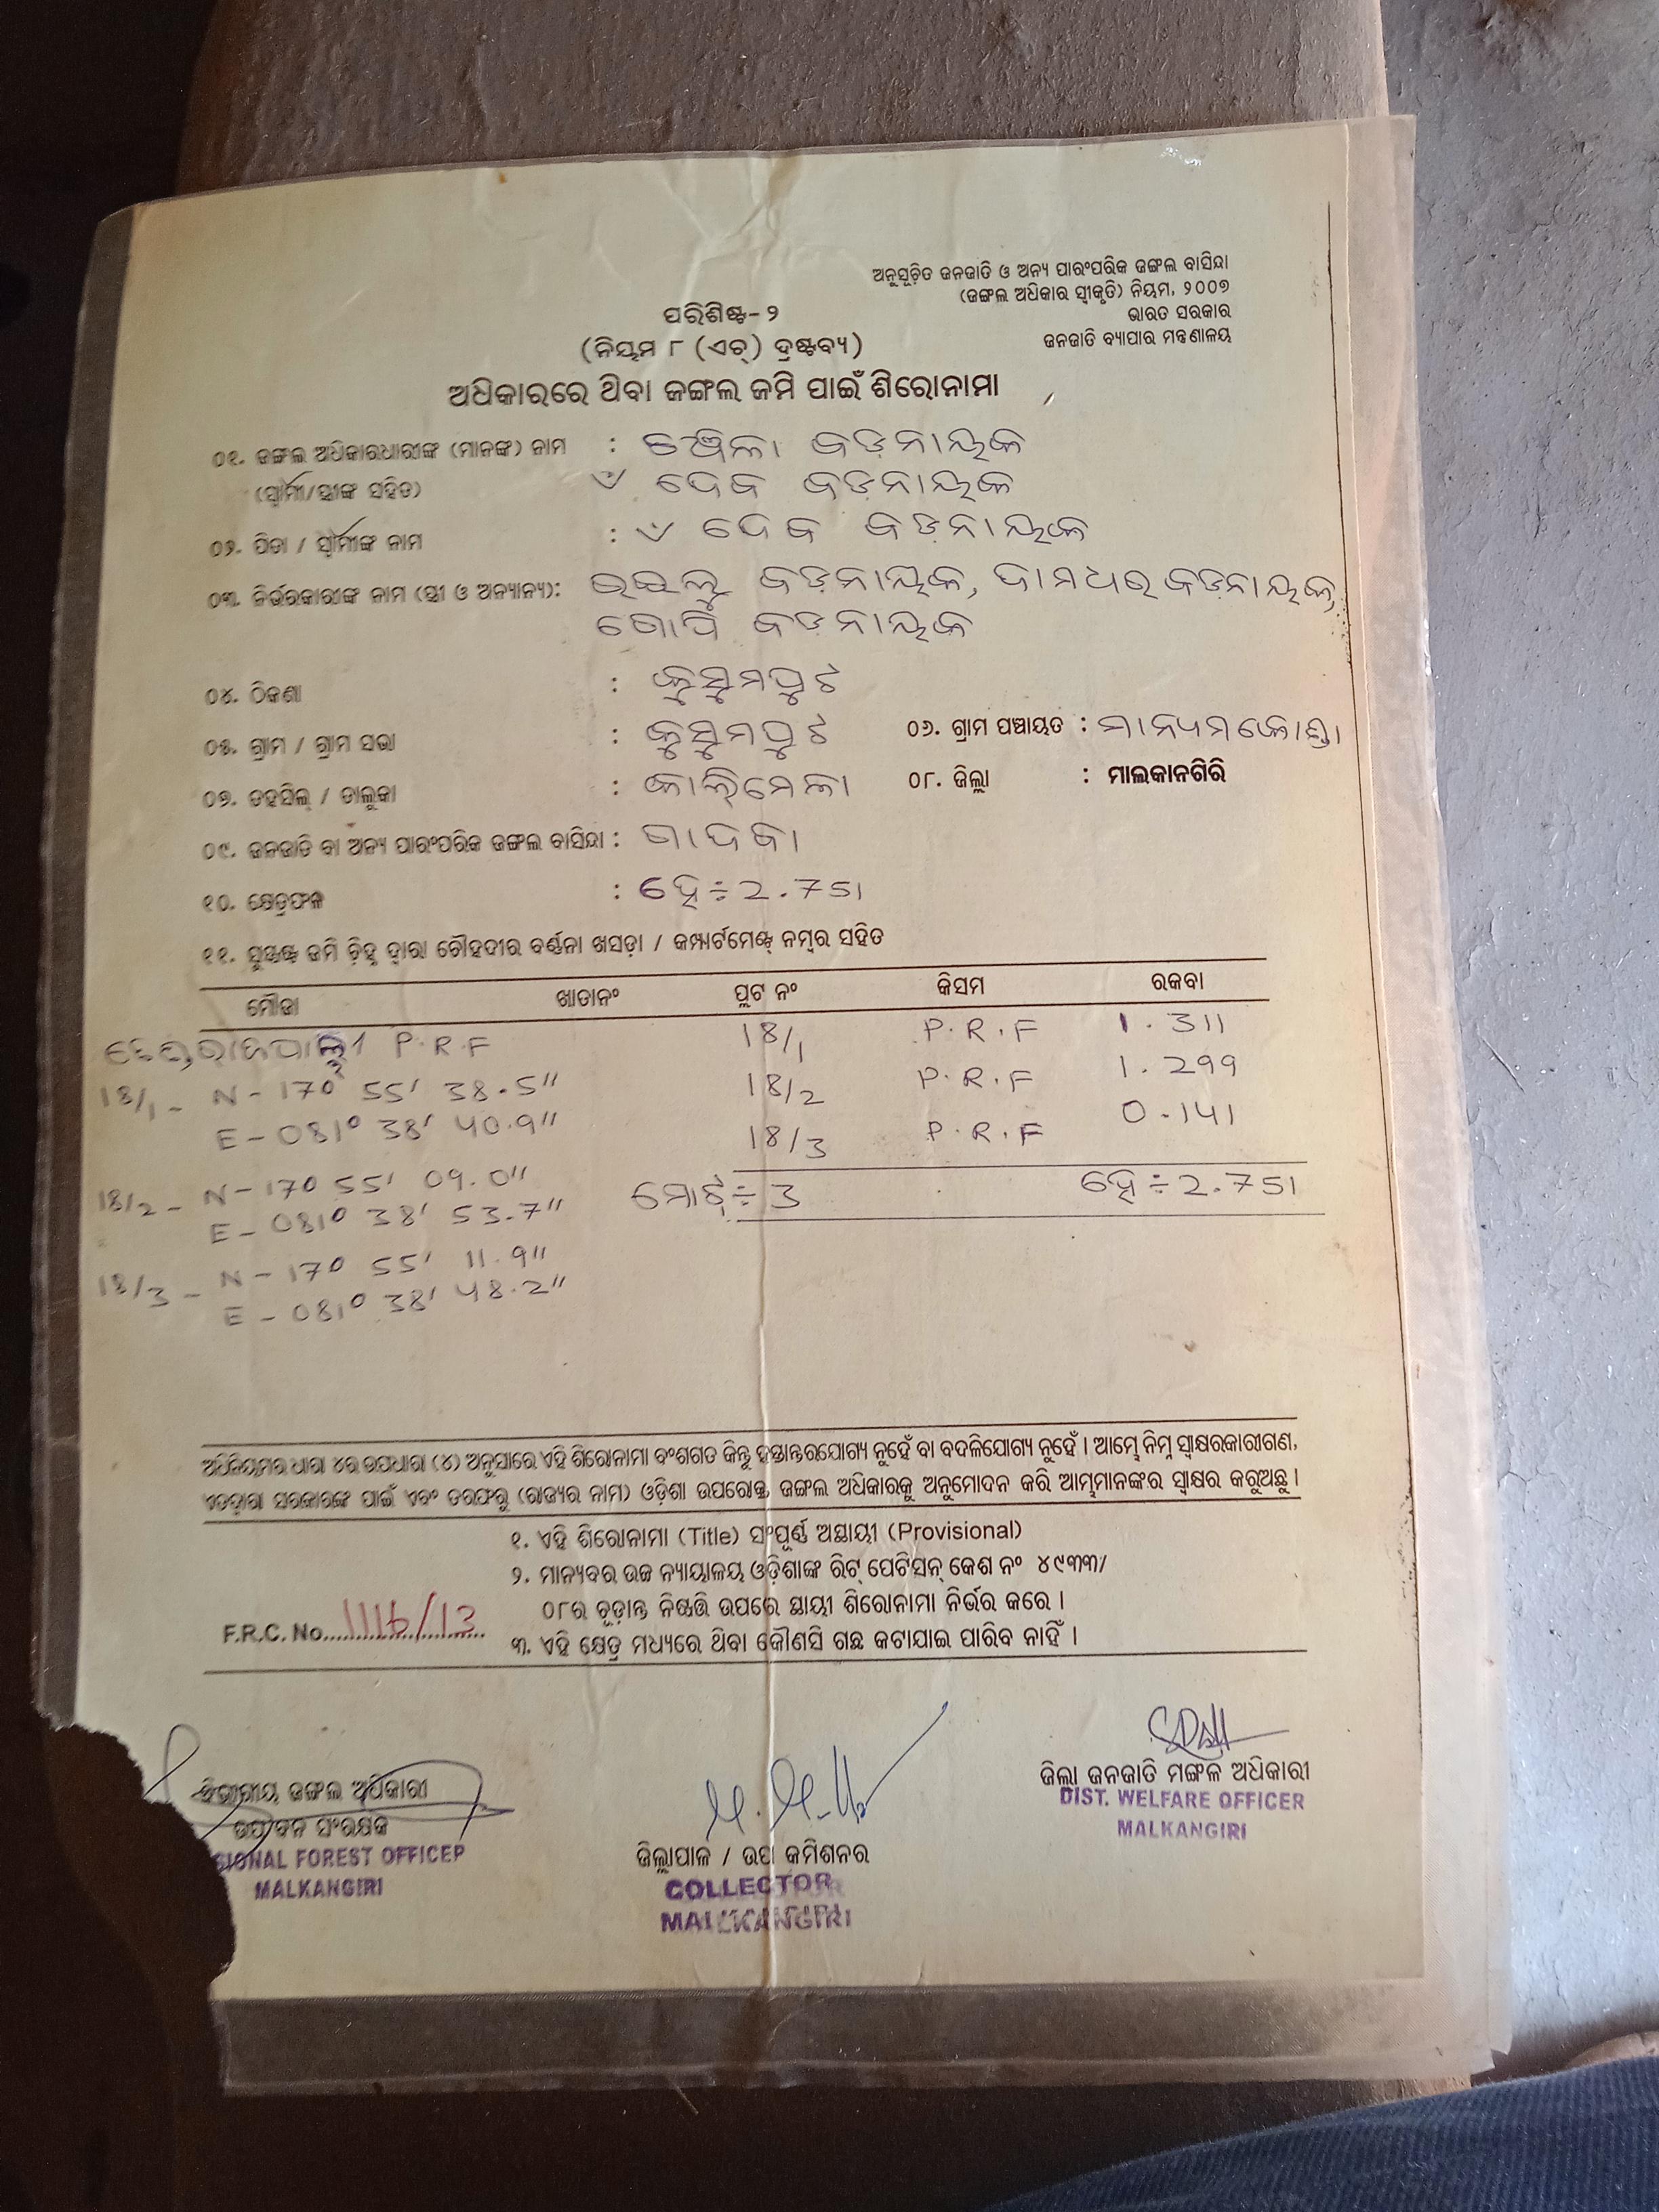 ଅନୁସୂଚିତ ଜନଜାତି ଓ ଅନ୍ୟ ପାରଂପରିକ ଜଙ୍ଗଲ ବାସିନ୍ଦା
(ଜଙ୍ଗଲ ଅଧିକାର ସ୍ୱୀକୃତି) ନିୟମ, ୨୦୦୭
ଭାରତ ସରକାର
ଜନଜାତି ବ୍ୟାପାର ମନ୍ତ୍ରଣାଳୟ
ପରିଶିଷ୍ଟ-୨
(ନିୟମ ୮ (ଏଚ୍) ଦ୍ରଷ୍ଟବ୍ୟ)
ଅଧିକାରରେ ଥିବା ଜଙ୍ଗଲ ଜମି ପାଇଁ ଶିରୋନାମା
୦୧. ଜଙ୍ଗଲ ଅଧିକାରଧାରୀଙ୍କ (ମାନଙ୍କ) ନାମ : ବଡ଼ନାୟକ
(ସ୍ୱାମୀ/ସ୍ତ୍ରୀଙ୍କ ସହିତ) ଦେବ ବଡ଼ନାୟକ
୦୨. ପିତା / ସ୍ୱାମୀଙ୍କ ନାମ : ଦେବ ବଡ଼ନାୟକ
୦୩. ନିର୍ଭରକାରୀଙ୍କ ନାମ (ସ୍ତ୍ରୀ ଓ ଅନ୍ୟାନ୍ୟ): ବଡ଼ନାୟକ, ଦାମଧର ବଡ଼ନାୟକ,
ଗୋପି ବଡ଼ନାୟକ
୦୪. ଠିକଣା : କୁସୁମପୁଟ
୦୫. ଗ୍ରାମ / ଗ୍ରାମ ସଭା : କୁସୁମପୁଟ ୦୬. ଗ୍ରାମ ପଞ୍ଚାୟତ : ମାନ୍ୟମକୋଣ୍ଡା
୦୭. ତହସିଲ୍ / ତାଲୁକା : କାଲିମେଳା ୦୮. ଜିଲ୍ଲା : ମାଲକାନଗିରି
୦୯. ଜନଜାତି ବା ଅନ୍ୟ ପାରଂପରିକ ଜଙ୍ଗଲ ବାସିନ୍ଦା : ଗାଦବା
୧୦. କ୍ଷେତ୍ରଫଳ : ହେ÷2.751
୧୧. ସୁସ୍ପଷ୍ଟ ଜମି ଚିହ୍ନ ଦ୍ୱାରା ଚୌହଦୀର ବର୍ଣ୍ଣନା ଖସଡ଼ା / କମ୍ପାର୍ଟମେଣ୍ଟ ନମ୍ବର ସହିତ
ମୌଜା ଖାତାନଂ ପ୍ଲଟ ନଂ କିସମ ରକବା
P.R.F 18/1 P.R.F 1.311
18/1 - N - 17° 55' 38.5" 18/2 P.R.F 1.299
E - 081° 38' 40.9" 18/3 P.R.F 0.141
18/2 - N - 17° 55' 09.0" ମୋଟ୍÷3 ହେ÷2.751
E - 081° 38' 53.7"
18/3 - N - 17° 55' 11.9"
E - 081° 38' 48.2"
ଅଧିନିୟମର ଧାରା ୪ର ଉପଧାରା (୪) ଅନୁସାରେ ଏହି ଶିରୋନାମା ବଂଶଗତ କିନ୍ତୁ ହସ୍ତାନ୍ତରଯୋଗ୍ୟ ନୁହେଁ ବା ବଦଳିଯୋଗ୍ୟ ନୁହେଁ । ଆମ୍ଭେ ନିମ୍ନ ସ୍ୱାକ୍ଷରକାରୀଗଣ,
ଏତଦ୍ଦ୍ୱାରା ସରକାରଙ୍କ ପାଇଁ ଏବଂ ତରଫରୁ (ରାଜ୍ୟର ନାମ) ଓଡ଼ିଶା ଉପରୋକ୍ତ ଜଙ୍ଗଲ ଅଧିକାରକୁ ଅନୁମୋଦନ କରି ଆମ୍ଭମାନଙ୍କର ସ୍ୱାକ୍ଷର କରୁଅଛୁ ।
୧. ଏହି ଶିରୋନାମା (Title) ସଂପୂର୍ଣ୍ଣ ଅସ୍ଥାୟୀ (Provisional)
୨. ମାନ୍ୟବର ଉଚ୍ଚ ନ୍ୟାୟାଳୟ ଓଡ଼ିଶାଙ୍କ ରିଟ୍ ପେଟିସନ୍ କେଶ ନଂ ୪୯୩୩/
୦୮ର ଚୂଡ଼ାନ୍ତ ନିଷ୍ପତ୍ତି ଉପରେ ସ୍ଥାୟୀ ଶିରୋନାମା ନିର୍ଭର କରେ ।
F.R.C. No. 1116/13
୩. ଏହି କ୍ଷେତ୍ର ମଧ୍ୟରେ ଥିବା କୌଣସି ଗଛ କଟାଯାଇ ପାରିବ ନାହିଁ ।
ଜଙ୍ଗଲ ଅଧିକାରୀ
ସଂରକ୍ଷକ
SIONAL FOREST OFFICER
MALKANGIRI
ଜିଲ୍ଲାପାଳ / ଉପ କମିଶନର
COLLECTOR
MALKANGIRI
ଜିଲ୍ଲା ଜନଜାତି ମଙ୍ଗଳ ଅଧିକାରୀ
DIST. WELFARE OFFICER
MALKANGIRI